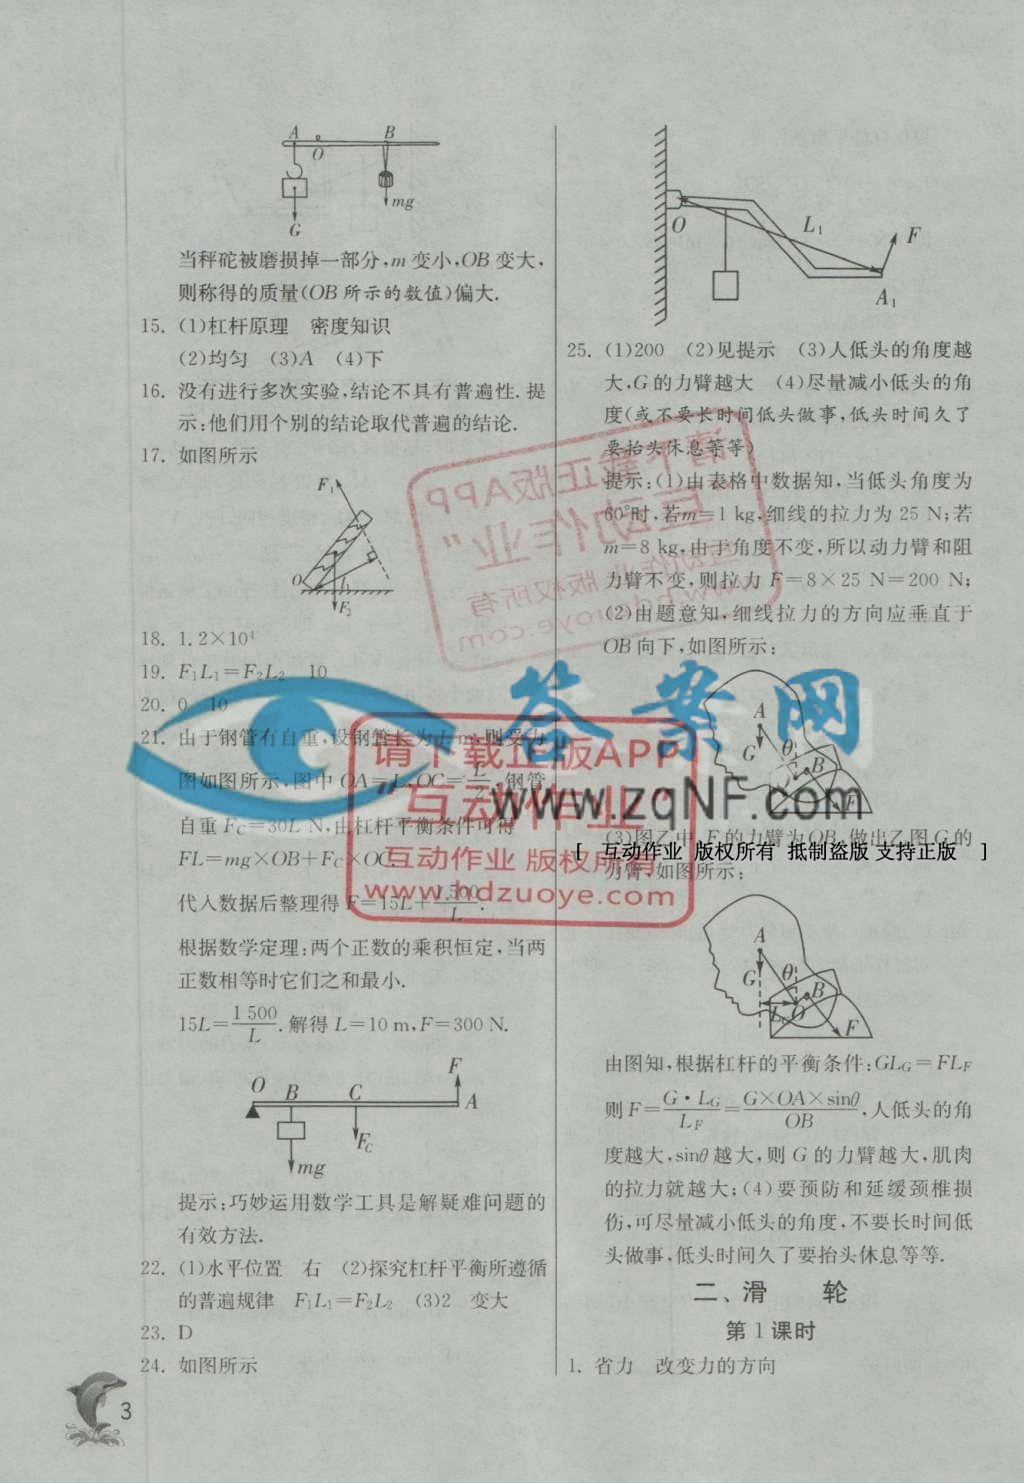 A
O
B
mg
G
当秤砣被磨损掉一部分,m变小,OB变大,
则称得的质量(OB所示的数值)偏大.
15. (1)杠杆原理 密度知识
(2)均匀 (3)A (4)下
16. 没有进行多次实验,结论不具有普遍性. 提
示:他们用个别的结论取代普遍的结论.
17. 如图所示
F₁
O
F₂
18. 1.2×10⁴
19. F₁L₁=F₂L₂ 10
20. 0 10
21. 由于钢管有自重,设钢管长为L m,则受力
图如图所示,图中OA=L,OC=L/2,钢管
自重F_C=30L N,由杠杆平衡条件可得
FL=mg×OB+F_C×OC.
代入数据后整理得F=15L+1 500/L.
根据数学定理:两个正数的乘积恒定,当两
正数相等时它们之和最小.
15L=1 500/L. 解得L=10 m,F=300 N.
O B C F A
F_C
mg
提示:巧妙运用数学工具是解疑难问题的
有效方法.
22. (1)水平位置 右 (2)探究杠杆平衡所遵循
的普遍规律 F₁L₁=F₂L₂ (3)2 变大
23. D
24. 如图所示
3
O
L₁
F
A₁
25. (1)200 (2)见提示 (3)人低头的角度越
大,G的力臂越大 (4)尽量减小低头的角
度(或不要长时间低头做事,低头时间久了
要抬头休息等等)
提示:(1)由表格中数据知,当低头角度为
60°时,若m=1 kg,细线的拉力为25 N;若
m=8 kg,由于角度不变,所以动力臂和阻
力臂不变,则拉力F=8×25 N=200 N;
(2)由题意知,细线拉力的方向应垂直于
OB向下,如图所示:
A
G
θ
B
F
(3)图乙中,F的力臂为OB,做出乙图G的
力臂,如图所示:
A
G
θ
B
O
F
由图知,根据杠杆的平衡条件:GL_G=FL_F
则F=G·L_G/L_F=G×OA×sinθ/OB,人低头的角
度越大,sinθ越大,则G的力臂越大,肌肉
的拉力就越大;(4)要预防和延缓颈椎损
伤,可尽量减小低头的角度,不要长时间低
头做事,低头时间久了要抬头休息等等.
二、滑 轮
第1课时
1. 省力 改变力的方向
答案网
www.zqNF.com
请下载正版APP
“互动作业”
互动作业 版权所有
www.hdzuoye.com
[ 互动作业 版权所有 抵制盗版 支持正版 ]
请下载正版APP
“互动作业”
互动作业 版权所有
www.hdzuoye.com